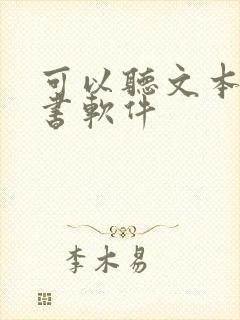 可以聽文本
書軟件
李木易